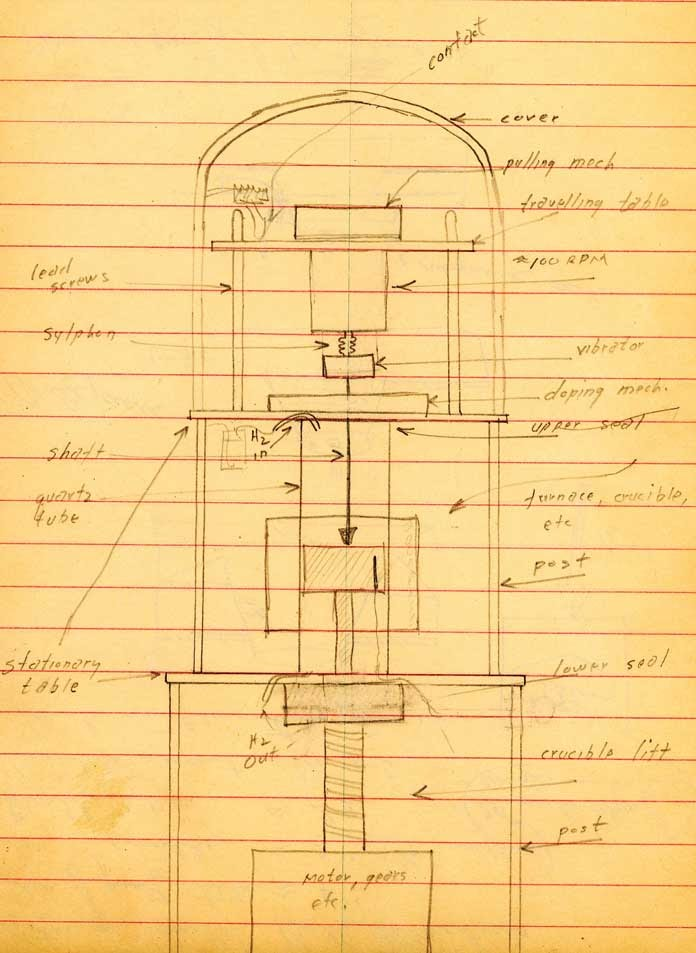 contact
cover
pulling mech
travelling table
lead
screws
≈100 RPM
sylphon
vibrator
doping mech.
H2
in
upper seal
shaft
quartz
tube
furnace, crucible,
etc
post
stationary
table
lower seal
H2
out
crucible lift
post
Motor, gears
etc.